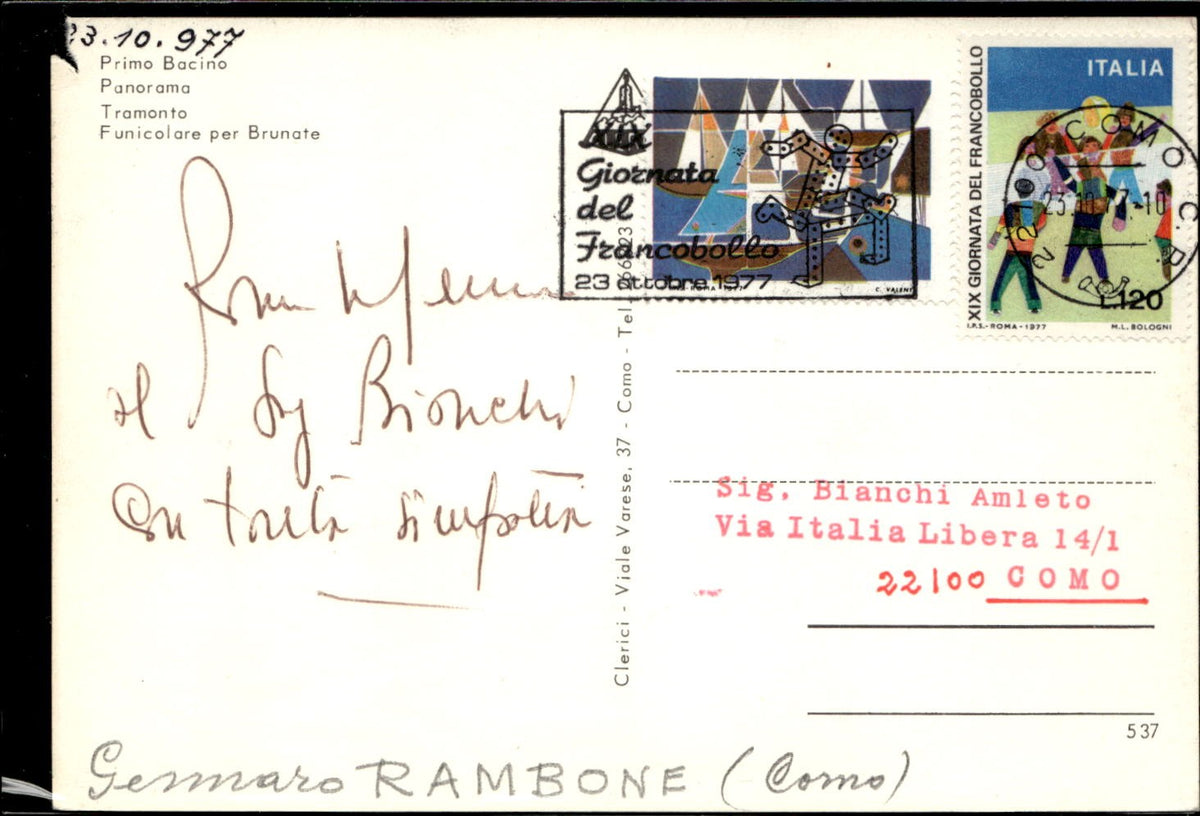 23.10.977
Primo Bacino
Panorama
Tramonto
Funicolare per Brunate
al Sig Bianchi
con tanta simpatia
Gennaro RAMBONE (Como)
Clerici - Viale Varese, 37 - Como - Tel
XIX
Giornata
del
Francobollo
23 ottobre 1977
C. VALENT
XIX GIORNATA DEL FRANCOBOLLO
ITALIA
L.120
I.P.S. - ROMA - 1977
M.L. BOLOGNI
22100 COMO C.P.
23.10.77-10
Sig. Bianchi Amleto
Via Italia Libera 14/1
22100 COMO
537